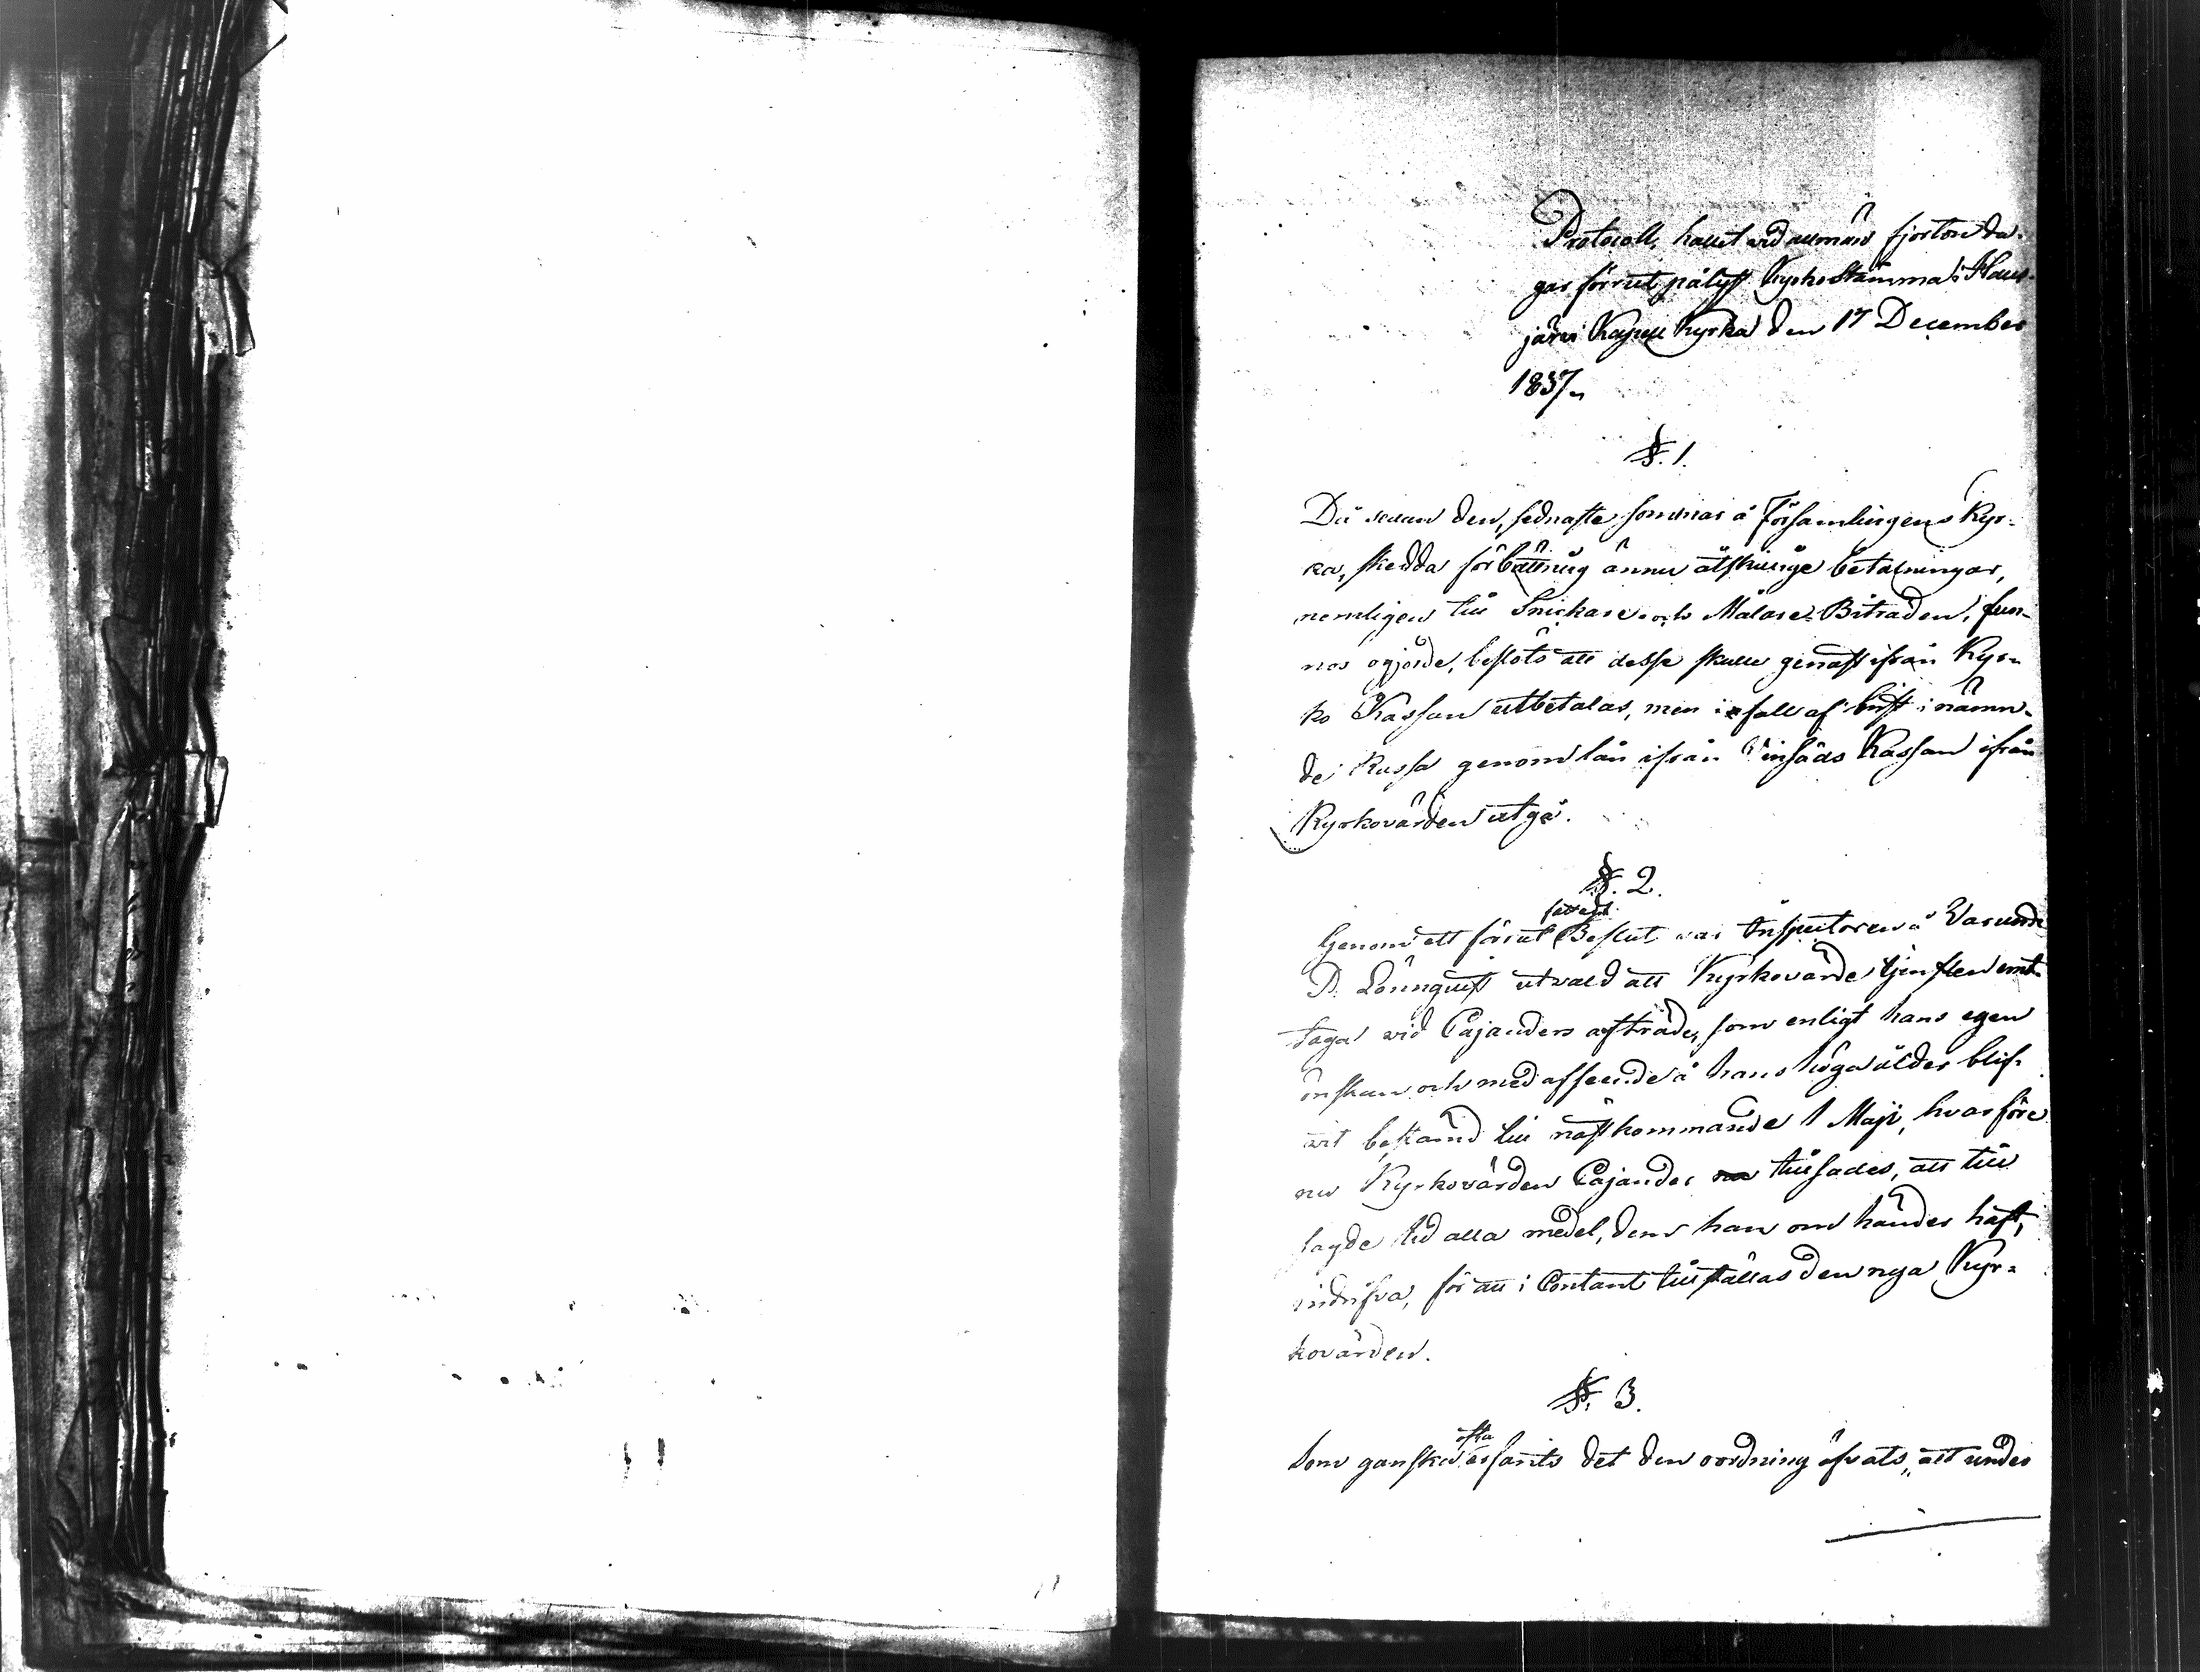 Protocoll, hållet vid allmän fjorton da-
gar förrut pålyst KyrkoStämma i Haus-
järvi Kapell Kyrka den 17 December
1837.
§. 1.
Då sedan den, sednaste sommar å Församlingens Kyr-
ka, skedda förbättring ännu åtskillige betalningar,
nemligen till Snickare och Målare-Biträden, fun-
nos ogjorde, beslöts att desse skulle genast ifrån Kyr-
ko Kassan utbetalas, men i fall af brist i nämn-
de Kassa genom lån ifrån Vinsäds Kassan ifrån
Kyrkovärden utgå.
§. 2.
Genom ett förut fattadt Beslut var Inspectoren å
P. Lönnquist utvald att Kyrkovärde tjensten emot-
taga vid Cajanders afträde, som enligt hans egen
önskan och med afseende å hans höga ålder blif-
vit bestämd till nästkommande 1 Maji, hvarföre
nu Kyrkovärden Cajander tillsades, att till
sagde tid alla medel, dem han om händer haft,
indrifva, för att i Contant tillställas den nya Kyr-
kovärden.
§. 3.
Som ganska ofta det den oordning öfvats, att under